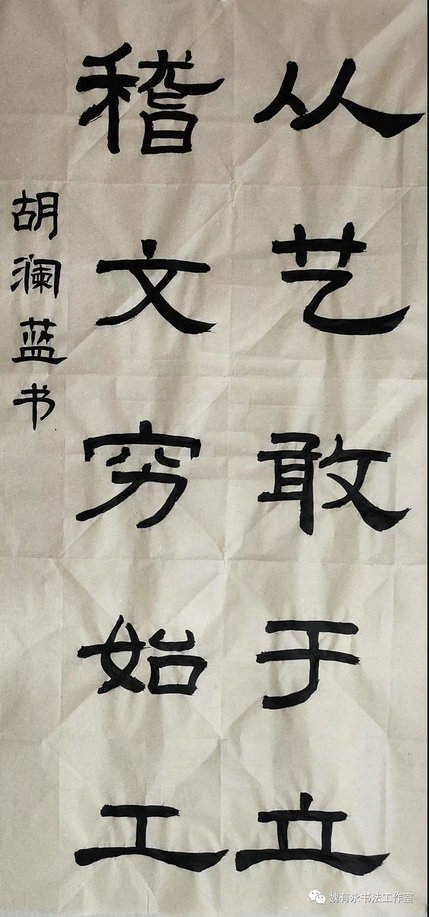 从艺敢于立
稽文穷始工
胡澜蓝书
魏有永书法工作室